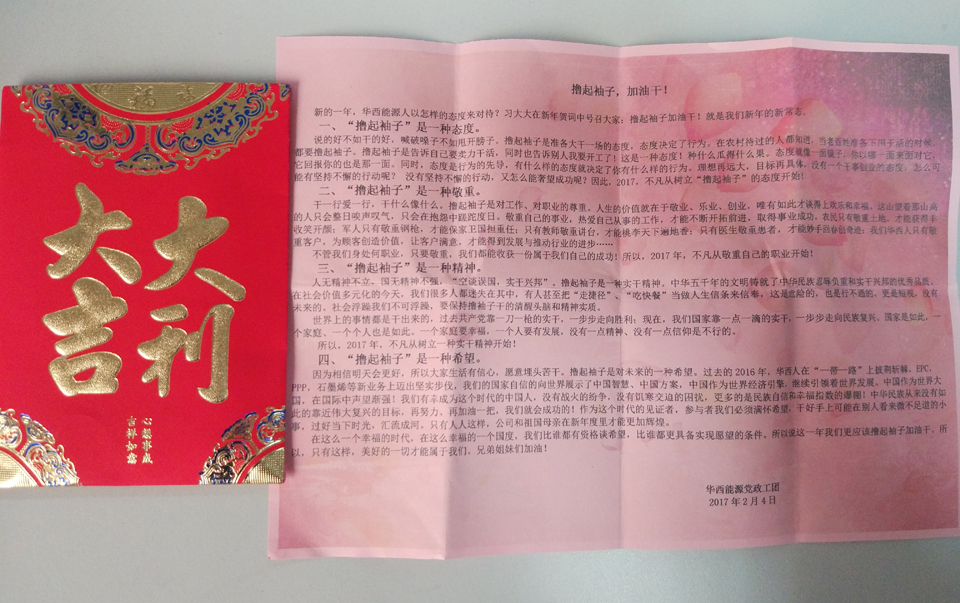 福
大吉
大利
心想事成
吉祥如意
撸起袖子，加油干！
新的一年，华西能源人以怎样的态度来对待？习大大在新年贺词中号召大家：撸起袖子加油干！就是我们新年的新常态。
一、“撸起袖子”是一种态度。
说的好不如干的好，喊破嗓子不如甩开膀子。撸起袖子是准备大干一场的态度，态度决定了行为。在农村待过的人都知道，当老百姓准备下地干活的时候，
都要撸起袖子。撸起袖子是告诉自己要卖力干活，同时也告诉别人我要开工了！这是一种态度！种什么瓜得什么果。态度就像一面镜子，你以哪一面来面对它，
它回报你的也是那一面。同时，态度是行为的先导，有什么样的态度就决定了你有什么样的行为。理想再远大，目标再具体，没有一个干事创业的态度，怎么可
能有坚持不懈的行动呢？没有坚持不懈的行动，又怎么能奢望成功呢？因此，2017，不凡从树立“撸起袖子”的态度开始！
二、“撸起袖子”是一种敬重。
干一行爱一行，干什么像什么。撸起袖子是对工作、对职业的尊重。人生的价值就在于敬业、乐业、创业，唯有如此才谈得上欢乐和幸福。这山望着那山高
的人只会整日唉声叹气，只会在抱怨中蹉跎度日。敬重自己的事业，热爱自己从事的工作，才能不断开拓前进，取得事业成功。农民只有敬重土地，才能获得丰
收笑开颜；军人只有敬重钢枪，才能保家卫国担重任；只有教师敬重讲台，才能桃李天下遍地香；只有医生敬重患者，才能妙手回春创奇迹；我们华西人只有敬
重客户，为顾客创造价值，让客户满意，才能得到发展与推动行业的进步……
不管我们身处何职业，只要敬重，我们都能收获一份属于我们自己的成功！所以，2017年，不凡从敬重自己的职业开始！
三、“撸起袖子”是一种精神。
人无精神不立，国无精神不强。“空谈误国，实干兴邦”，撸起袖子是一种实干精神。中华五千年的文明铸就了中华民族忍辱负重和实干兴邦的优秀品质，
在社会价值多元化的今天，我们很多人都迷失在其中，有人甚至把“走捷径”、“吃快餐”当做人生信条来信奉。这是危险的，也是行不通的，更是短视、没有
未来的。社会浮躁我们不可浮躁，要保持撸袖子干的清醒头脑和精神实质。
世界上的事情都是干出来的，过去共产党靠一刀一枪的实干，一步步走向胜利；现在，我们国家靠一点一滴的实干，一步步走向民族复兴。国家是如此，一
个家庭、一个个人也是如此。一个家庭要幸福，一个人要有发展，没有一点精神、没有一点信仰是不行的。
所以，2017年，不凡从树立一种实干精神开始！
四、“撸起袖子”是一种希望。
因为相信明天会更好，所以大家生活有信心，愿意埋头苦干。撸起袖子是对未来的一种希望。过去的2016年，华西人在“一带一路”上披荆斩棘，EPC、
PPP、石墨烯等新业务上迈出坚实步伐，我们的国家自信的向世界展示了中国智慧、中国方案，中国作为世界经济引擎，继续引领着世界发展。中国作为世界大
国，在国际中声望渐强！我们有幸成为这个时代的中国人，没有战火的纷争，没有饥寒交迫的困扰，更多的是民族自信和幸福指数的爆棚！中华民族从来没有如
此的靠近伟大复兴的目标，再努力、再加油一把，我们就会成功的！作为这个时代的见证者，参与者我们必须满怀希望，干好手上可能在别人看来微不足道的小
事，过好当下时光，汇流成河。只有人人这样，公司和祖国母亲在新年度里才能更加辉煌。
在这么一个幸福的时代，在这么幸福的一个国度，我们比谁都有资格谈希望，比谁都更具备实现愿望的条件。所以说这一年我们更应该撸起袖子加油干。所
以，只有这样，美好的一切才能属于我们，兄弟姐妹们加油！
华西能源党政工团
2017年2月4日